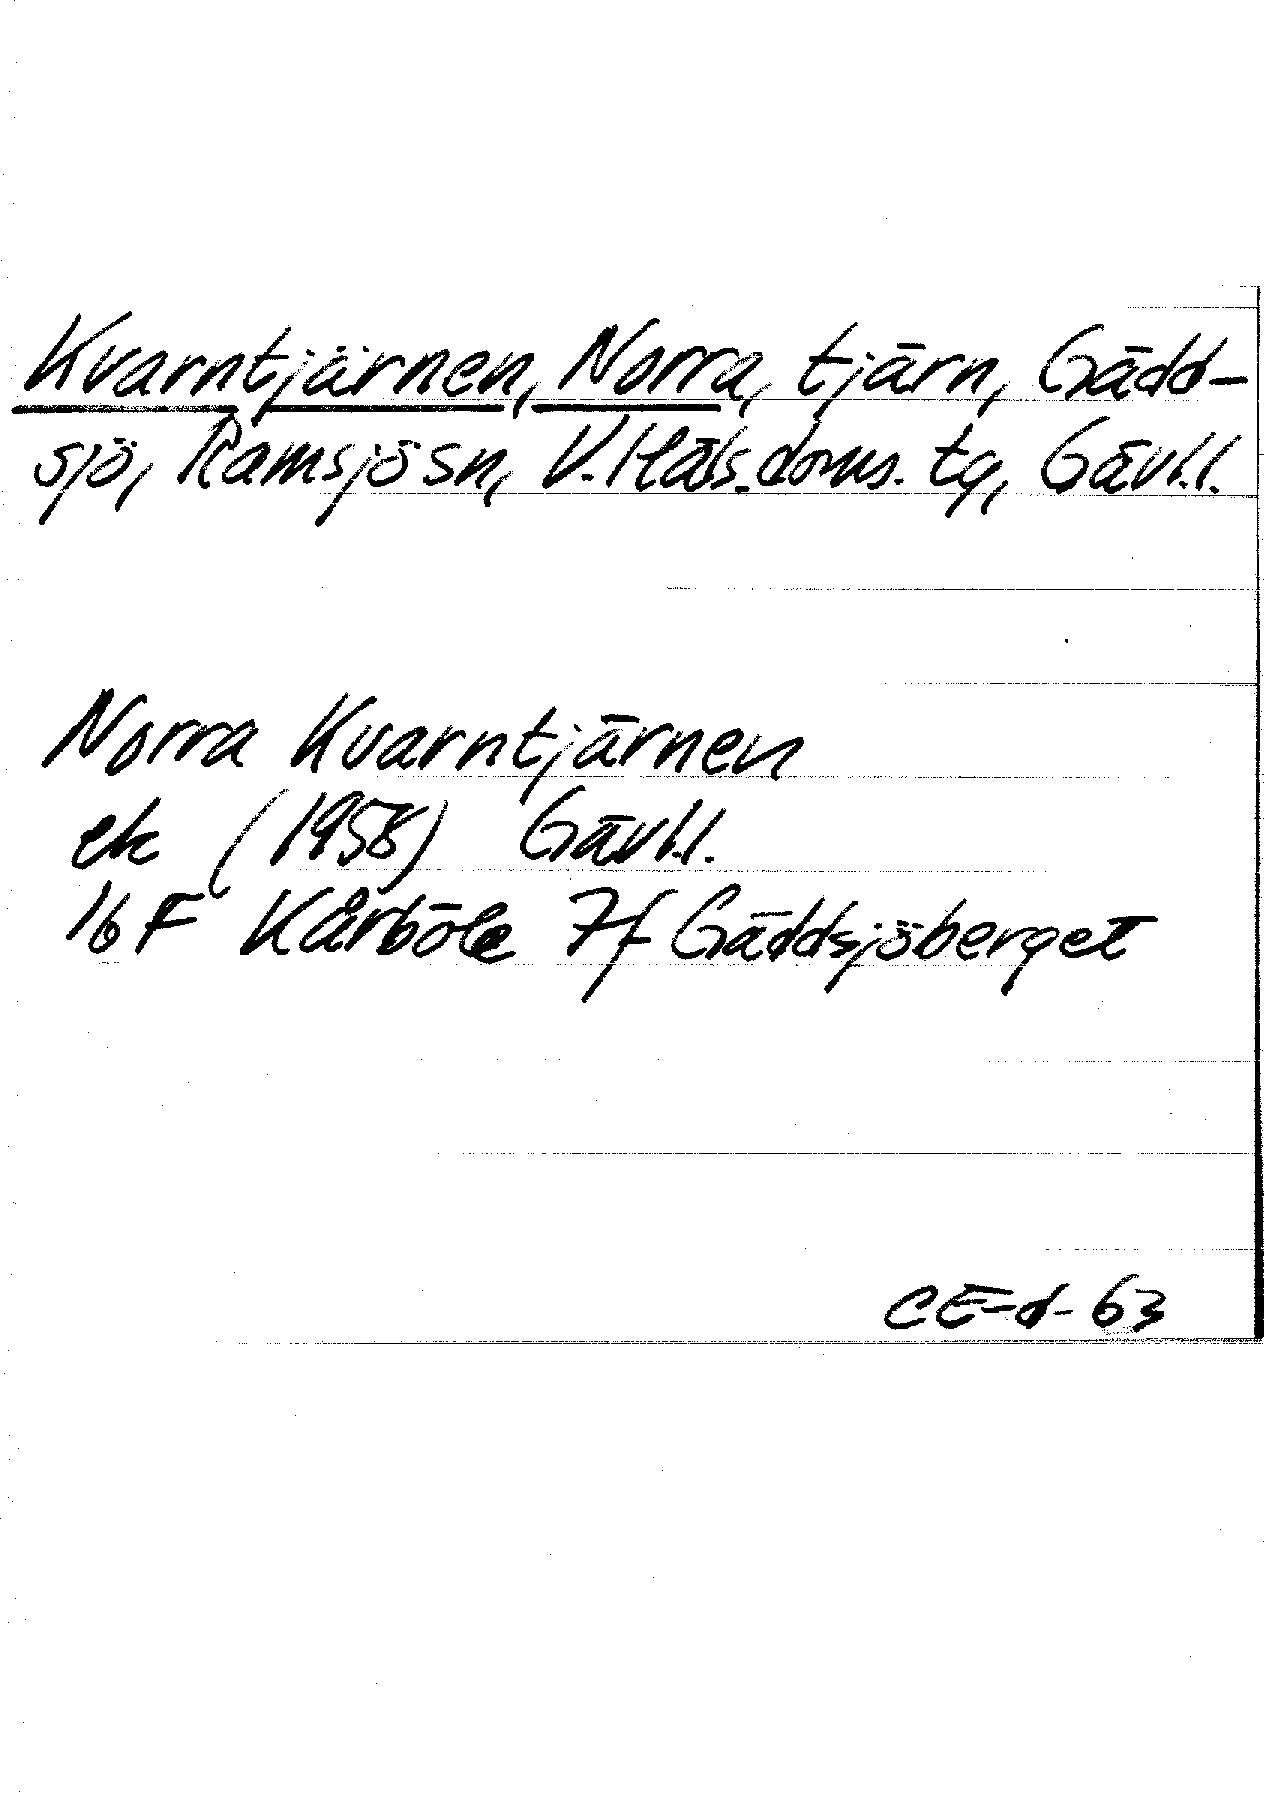 Kvarntjärnen, Norra, tjärn, Gädd-
sjö, Ramsjö sn, V. Häls. doms. tg, Gävl.l.
Norra Kvarntjärnen
ek (1958) Gävl.l.
16 F Kårböle 7f Gäddsjöberget
CE-d-63